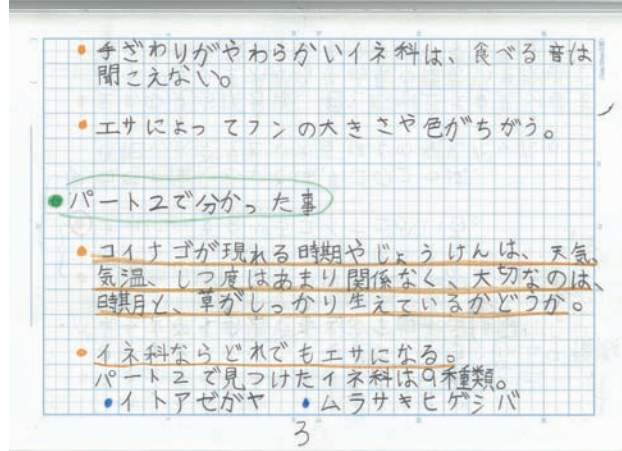 • 手ざわりがやわらかいイネ科は、食べる音は
聞こえない。
• エサによってフンの大きさや色がちがう。
● パート2で分かった事
• コイナゴが現れる時期やじょうけんは、天気。
気温、しつ度はあまり関係なく、大切なのは、
時期と、草がしっかり生えているかどうか。
• イネ科ならどれでもエサになる。
パート2で見つけたイネ科は9種類。
•イトアゼガヤ •ムラサキヒゲシバ
3